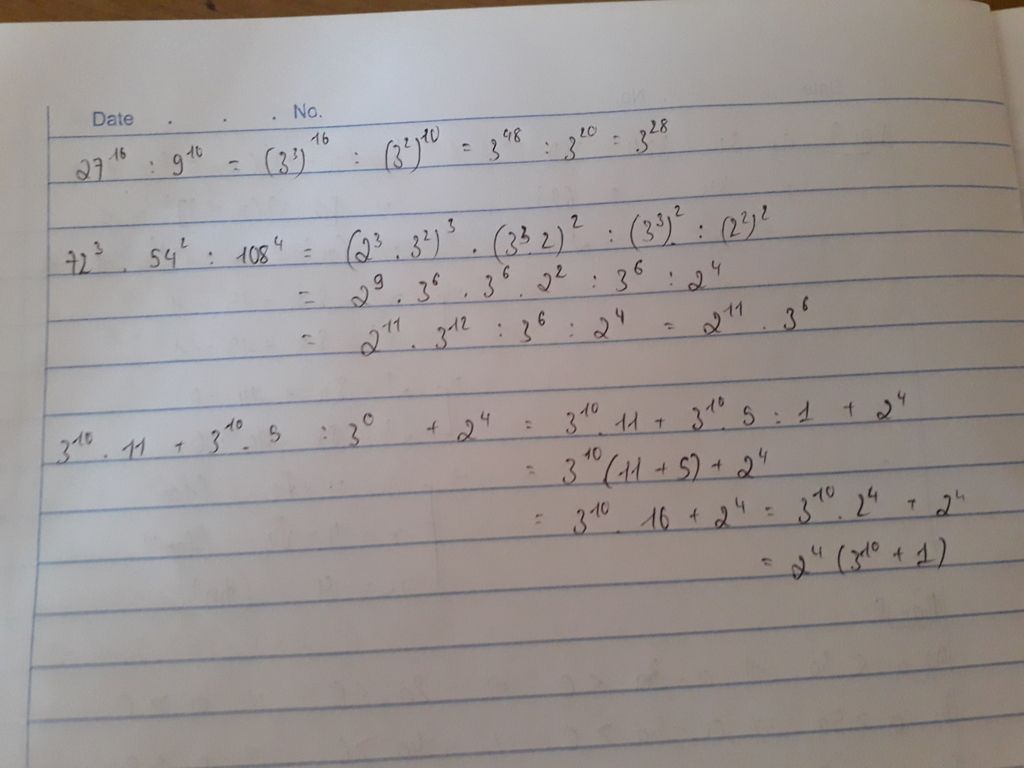 Date . . . No.
27¹⁶ : 9¹⁰ = (3³)¹⁶ : (3²)¹⁰ = 3⁴⁸ : 3²⁰ = 3²⁸
72³ . 54² : 108⁴ = (2³ . 3²)³ . (3³ . 2)² : (3³)² : (2²)²
= 2⁹ . 3⁶ . 3⁶ . 2² : 3⁶ : 2⁴
= 2¹¹ . 3¹² : 3⁶ : 2⁴ = 2¹¹ . 3⁶
3¹⁰ . 11 + 3¹⁰ . 5 : 3⁰ + 2⁴ = 3¹⁰ . 11 + 3¹⁰ . 5 : 1 + 2⁴
= 3¹⁰ (11 + 5) + 2⁴
= 3¹⁰ . 16 + 2⁴ = 3¹⁰ . 2⁴ + 2⁴
= 2⁴ (3¹⁰ + 1)